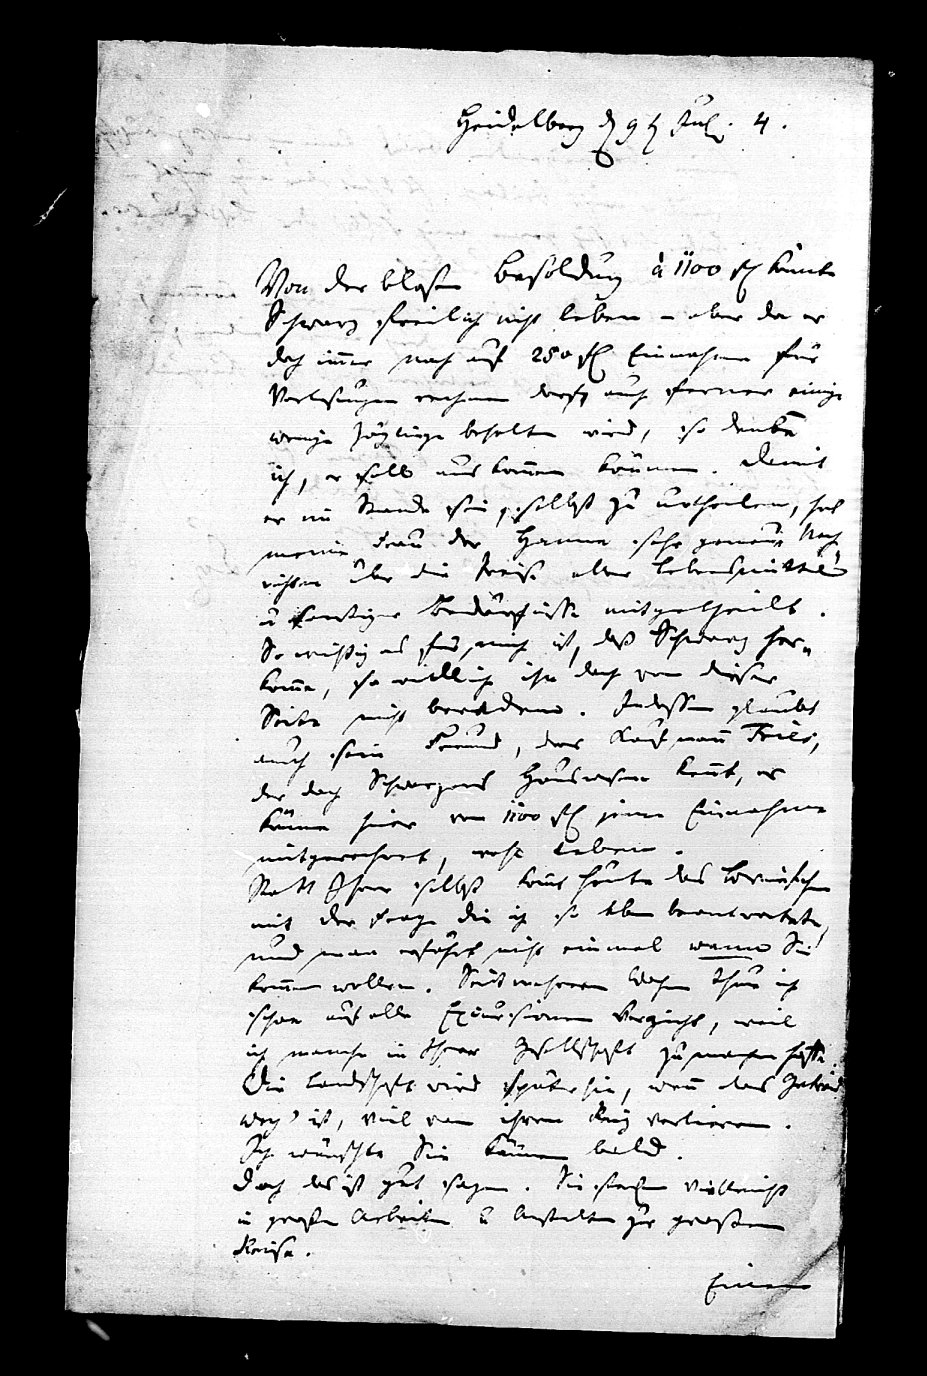 Heidelberg d 9t Jul. 4.
Von der bloßen Besoldung à 1100 fl könnte
Schwarz freilich nicht leben – aber da er
doch immer noch auf 250 fl Einnahme für
Vorlesungen rechnen darf, auch ferner einige
wenige Zöglinge behalten wird, so denke
ich, er soll auskommen können. Damit
er im Stande sei, selbst zu urtheilen, hat
meine Frau der Hanna sehr genaue Nach
richten über die Preise aller Lebensmittel
u sonstiger Bedürfnisse mitgetheilt.
So wichtig es für mich ist, daß Schwarz her-
komme, so will ich ihn doch von dieser
Seite nicht bereden. Indessen glaubt
auch sein Freund, der Kaufmann Fries,
der doch Schwarzens Hauswesen kennt, er
könne hier von 1100 fl jene Einnahme
mitgerechnet, wohl leben.
Statt Ihrer selbst kam heute das
mit der Frage die ich so eben beantwortete,
und man erfährt nicht einmal wann Sie
kommen wollen. Seit mehreren Wochen thue ich
schon auf alle Excursionen Verzicht, weil
ich manche in Ihrer Gesellschaft zu machen hoffte.
Die Landschaft wird späterhin, wenn das Getraid
weg ist, viel von ihrem Reiz verlieren.
Ich wünschte Sie kämen bald.
Doch das ist gut sagen. Sie stecken vielleicht
in großen Arbeiten u Anstalten zur großen
Reise.
Einen